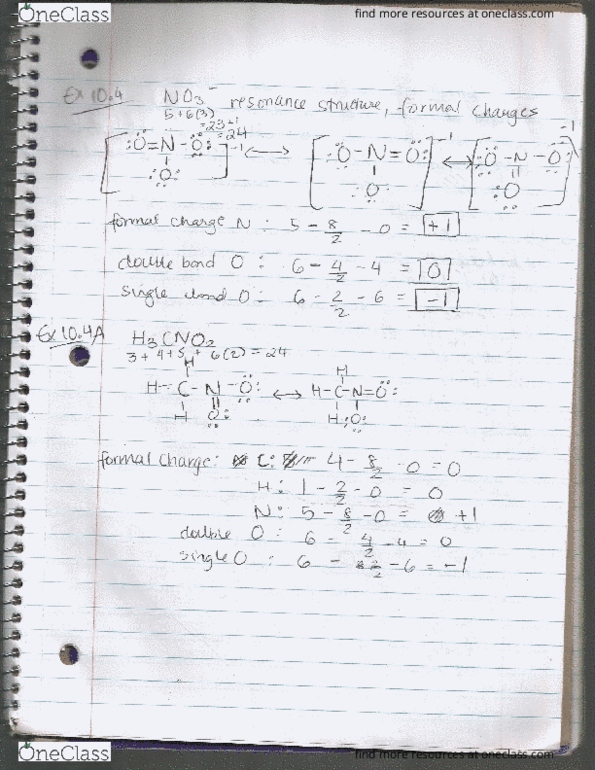 OneClass
find more resources at oneclass.com
Ex 10.4 NO3⁻ resonance structure, formal charges
5+6(3)
=23+1
=24
[:Ö=N-Ö:]-1 ↔ [:Ö-N=Ö:]-1 ↔ [:Ö-N-Ö:]-1
:O: :O: O
formal charge N : 5 - 8/2 - 0 = +1
double bond O : 6 - 4/2 - 4 = 0
single bond O : 6 - 2/2 - 6 = -1
Ex 10.4A H3CNO2
3+4+5+6(2)=24
H H
H-C-N-Ö: ↔ H-C-N=Ö:
H O: H :O:
formal charge: C: 4 - 8/2 - 0 = 0
H: 1 - 2/2 - 0 = 0
N: 5 - 8/2 - 0 = +1
double O : 6 - 4/2 - 4 = 0
single O : 6 - 2/2 - 6 = -1
OneClass
find more resources at oneclass.com